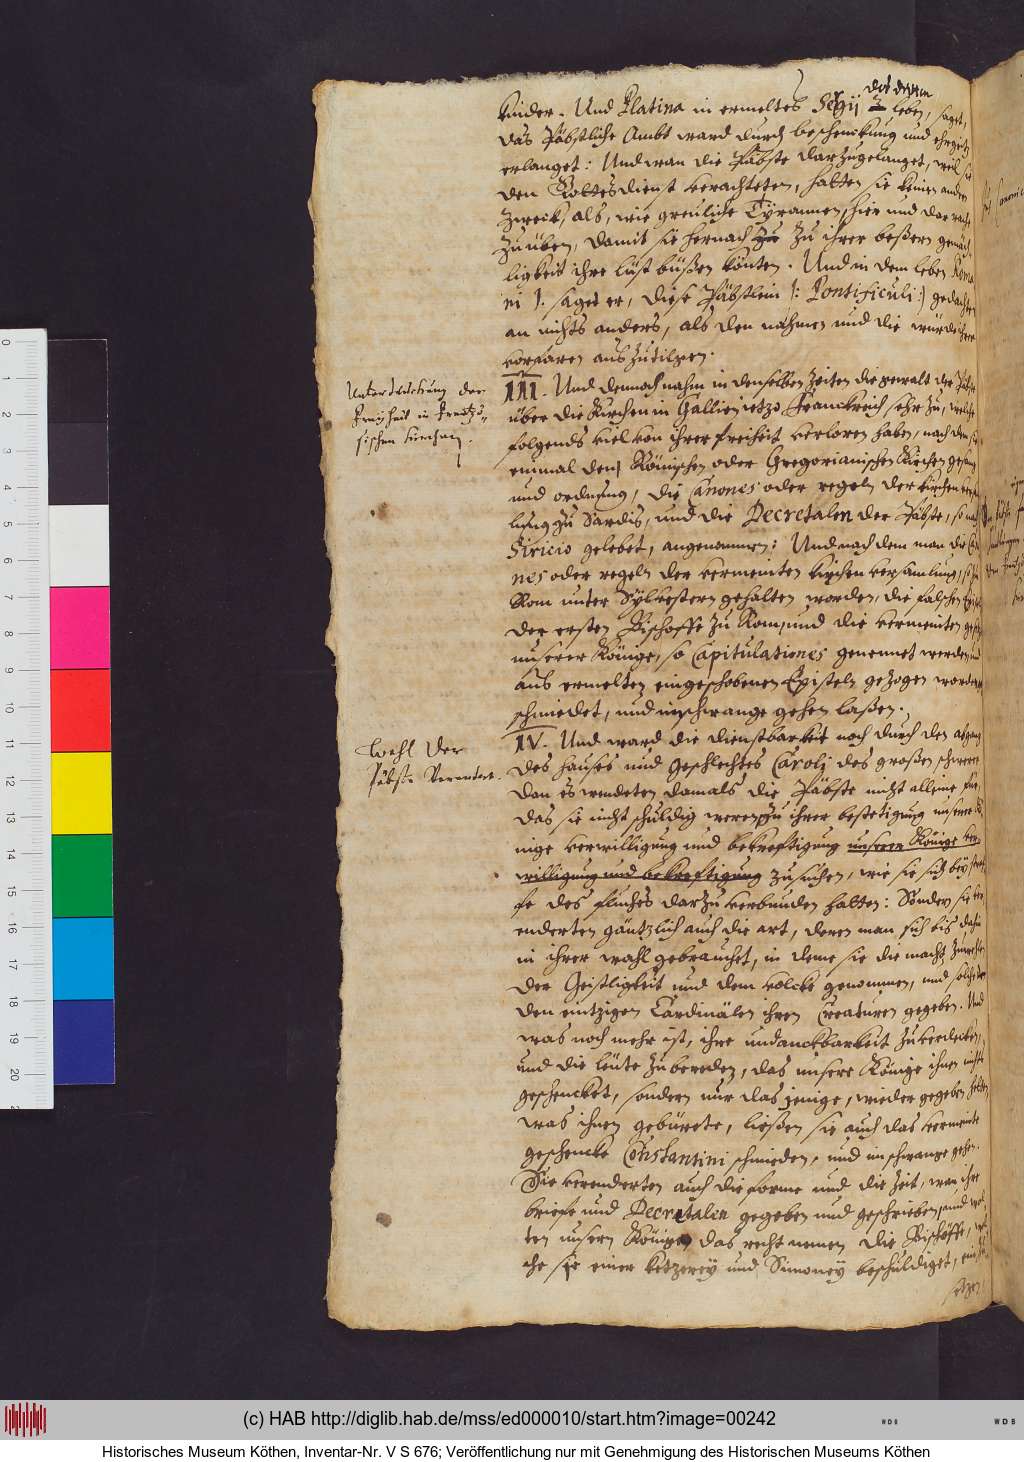 des dritten
kinder. Und Platina in ermeltes Sergij 3 leben, saget,
das Päbstliche Ambt ward durch beschenckung und ehrgeitz
erlanget: Und wan die Päbste darzu gelanget, weil sie
den Gottesdienst verachteten, hatten sie keinen andern
zweck, als, wie greuliche Tyrannen, hier und dar rache
zu üben, damit sie hernach zu zu ihrer beßern gemäch-
ligkeit ihre lust büßen könten. Und in dem leben Roma
ni 1. saget er, diese Päbstlein /: Pontificuli :/ gedachten
an nichts anders, als den nahmen und die würde ihrer
vorfaren auszutilgen.
Unterdruckung der
Freyheit in Frantzö-
sischen kirchen.
III. Und dennoch nahm in denselben zeiten die gewalt der Päbste
über die Kirchen in Gallien ietzo Franckreich sehr zu, welche
folgends viel von ihrer freiheit verloren haben, nach dem sie
einmal den Römischen oder Gregorianischen Kirchen gesang
und ordnung, die Canones oder regeln der kirchen versam
lung zu Sardis, und die Decretalen der Päbste, so nach
Siricio gelebet, angenommen: Und nach dem man die Cano
nes oder regeln der vermeinten kirchen versamlung, so zu
Rom unter Sylvestern gehalten worden, die falschen Epistel
der ersten Bischoffe zu Rom, und die vermeinten gesetz
unserer Könige, so Capitulationes genennet werden und
aus ermelten eingeschobenen Episteln gezogen worden,
schmiedet, und im schwange gehen laßen.
Wahl der
Päbste Verendert.
IV. Und ward die dienstbarkeit noch durch den abgang
des hauses und geschlechtes Caroli des großen schwerer
dan es wendeten damals die Päbste nicht alleine für,
das sie nicht schuldig weren, zu ihrer bestetigung unserer Kö
nige verwilligung und bekreftigung unserer Könige ver
willigung und bekreftigung zusuchen, wie sie sich bey straf
fe des fluches darzu verbunden hatten: Sondern sie ver
enderten gäntzlich auch die art, deren man sich bis dahin
in ihrer wahl gebrauchet, in deme sie die macht zu wehlen
der Geistligkeit und dem volcke genommen, und solche
den eintzigen Cardinälen ihren Creaturen gegeben. Und
was noch mehr ist, ihre undanckbarkeit zu verdecken,
und die leute zu bereden, das unsere Könige ihnen nichts
geschencket, sondern nur das jenige, wieder gegeben hetten
was ihnen gebürete, ließen sie auch das vermeinte
geschencke Constantini schmieden, und im schwange gehen.
Sie verenderten auch die forme und die zeit, wan ihre
briefe und Decretalen gegeben und geschrieben, und wol
ten unsern Königen das recht nemen die Bischöffe, wel
che sie einer ketzerey und Simoney beschuldiget,
setzen
0
1
2
3
4
5
6
7
8
9
10
11
12
13
14
15
16
17
18
19
20
(c) HAB http://diglib.hab.de/mss/ed000010/start.htm?image=00242
WDB
WDB
Historisches Museum Köthen, Inventar-Nr. V S 676; Veröffentlichung nur mit Genehmigung des Historischen Museums Köthen